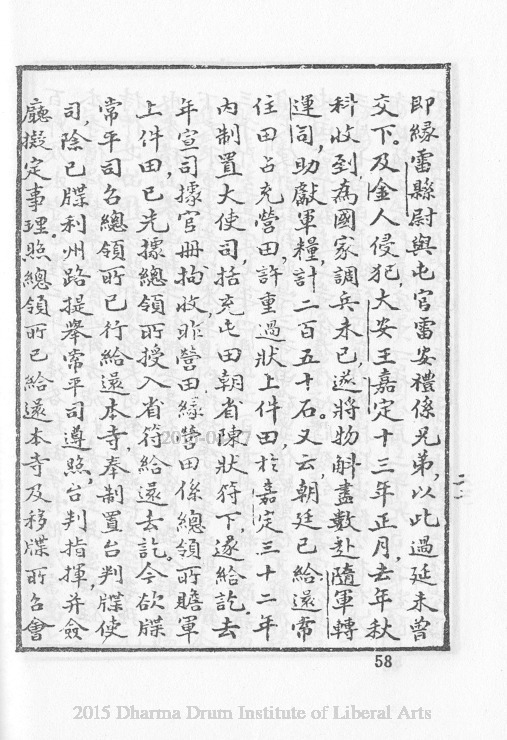 即緣雷縣尉與屯官雷安禮係兄弟,以此過延未曾
交下。及金人侵犯,大安王嘉定十三年正月,去年秋
科收到,為國家調兵未已,遂將物斛盡數赴隨軍轉
運司,助獻軍糧,計二百五十石。又云,朝廷已給還常
住田占充營田,許重過狀上件田,於嘉定三十二年
內制置大使司,括充屯田朝省陳狀符下,遂給訖。去
年宣司據官冊拘收,昨營田緣營田係總領所贍軍
上件田,已先據總領所授入省符給還去訖。今欲牒
常平司名總領所已行給還本寺,奉制置台判牒使
司,除已牒利州路提舉常平司遵照,台判指揮,并僉
廳擬定事理。照總領所已給還本寺及移牒所名會
二二
58
2015 Dharma Drum Institute of Liberal Arts